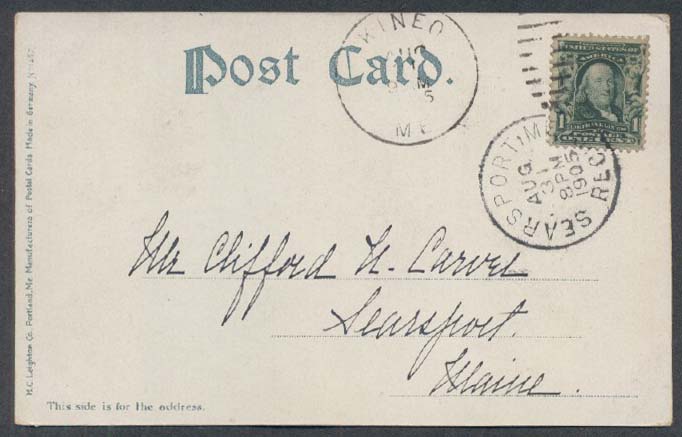 Post Card.
KINEO
AUG
M
5
ME
UNITED STATES OF
AMERICA
1 1
POSTAGE
ONE CENT
SEARSPORT, ME
AUG
31
8PM
1905
REC
Mr Clifford N. Carver
Searsport.
Maine.
This side is for the address.
H.C. Leighton Co. Portland, Me. Manufacturers of Postal Cards. Made in Germany.